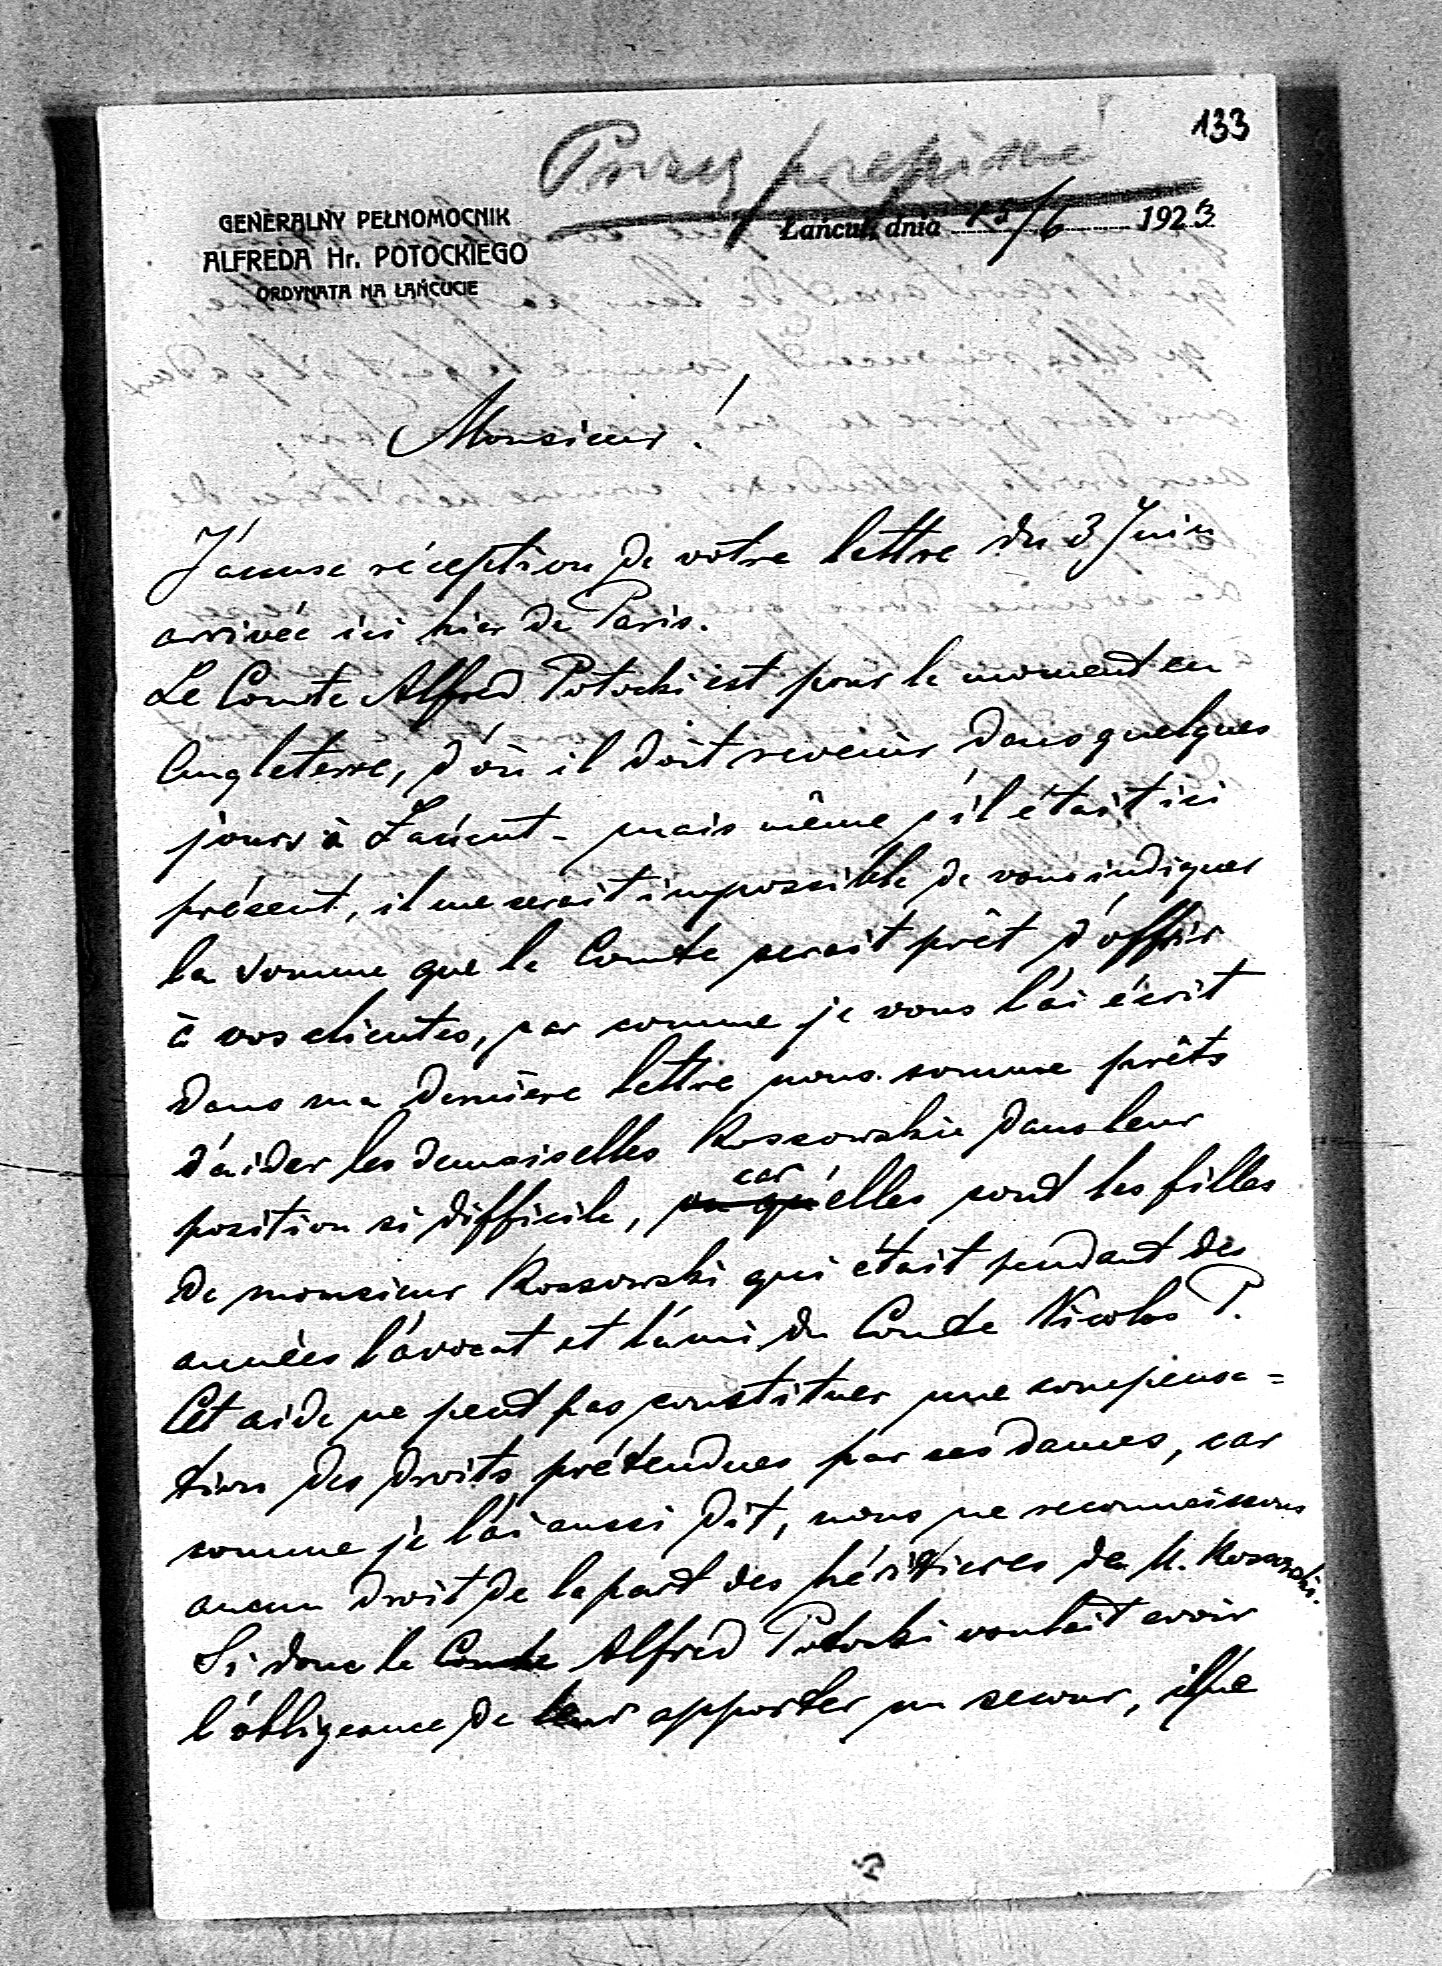 133
Proszę przepisać
GENERALNY PEŁNOMOCNIK
ALFREDA Hr. POTOCKIEGO
ORDYNATA NA ŁAŃCUCIE
Łańcut, dnia 15/6 1923
Monsieur!
J'accuse réception de vôtre lettre du 3 Juin
arrivée ici hier de Paris.
Le Comte Alfred Potocki est pour le moment en
Angleterre, d'où il doit revenir dans quelques
jours à Łańcut - mais même s'il était ici
présent, il me serait impossible de vous indiquer
la somme que le Comte serait prêt d'offrir
à vos clientes, car comme je vous l'ai écrit
dans ma dernière lettre nous somme prêts
d'aider les demoiselles Kossowskie dans leur
position si difficile, car elles sont les filles
de monsieur Kossowski qui était pendant des
années l'avocat et l'ami du Comte Nicolas P.
Cet aide ne peut pas constituer une compensa=
tion des droits prétendues par ces dames, car
comme je l'ai aussi dit, nous ne reconnaissons
aucun droit de la part des héritieres de M. Kossowski.
Si donc le Comte Alfred Potocki voulait avoir
l'obligeance de leur apporter un secour, il ne